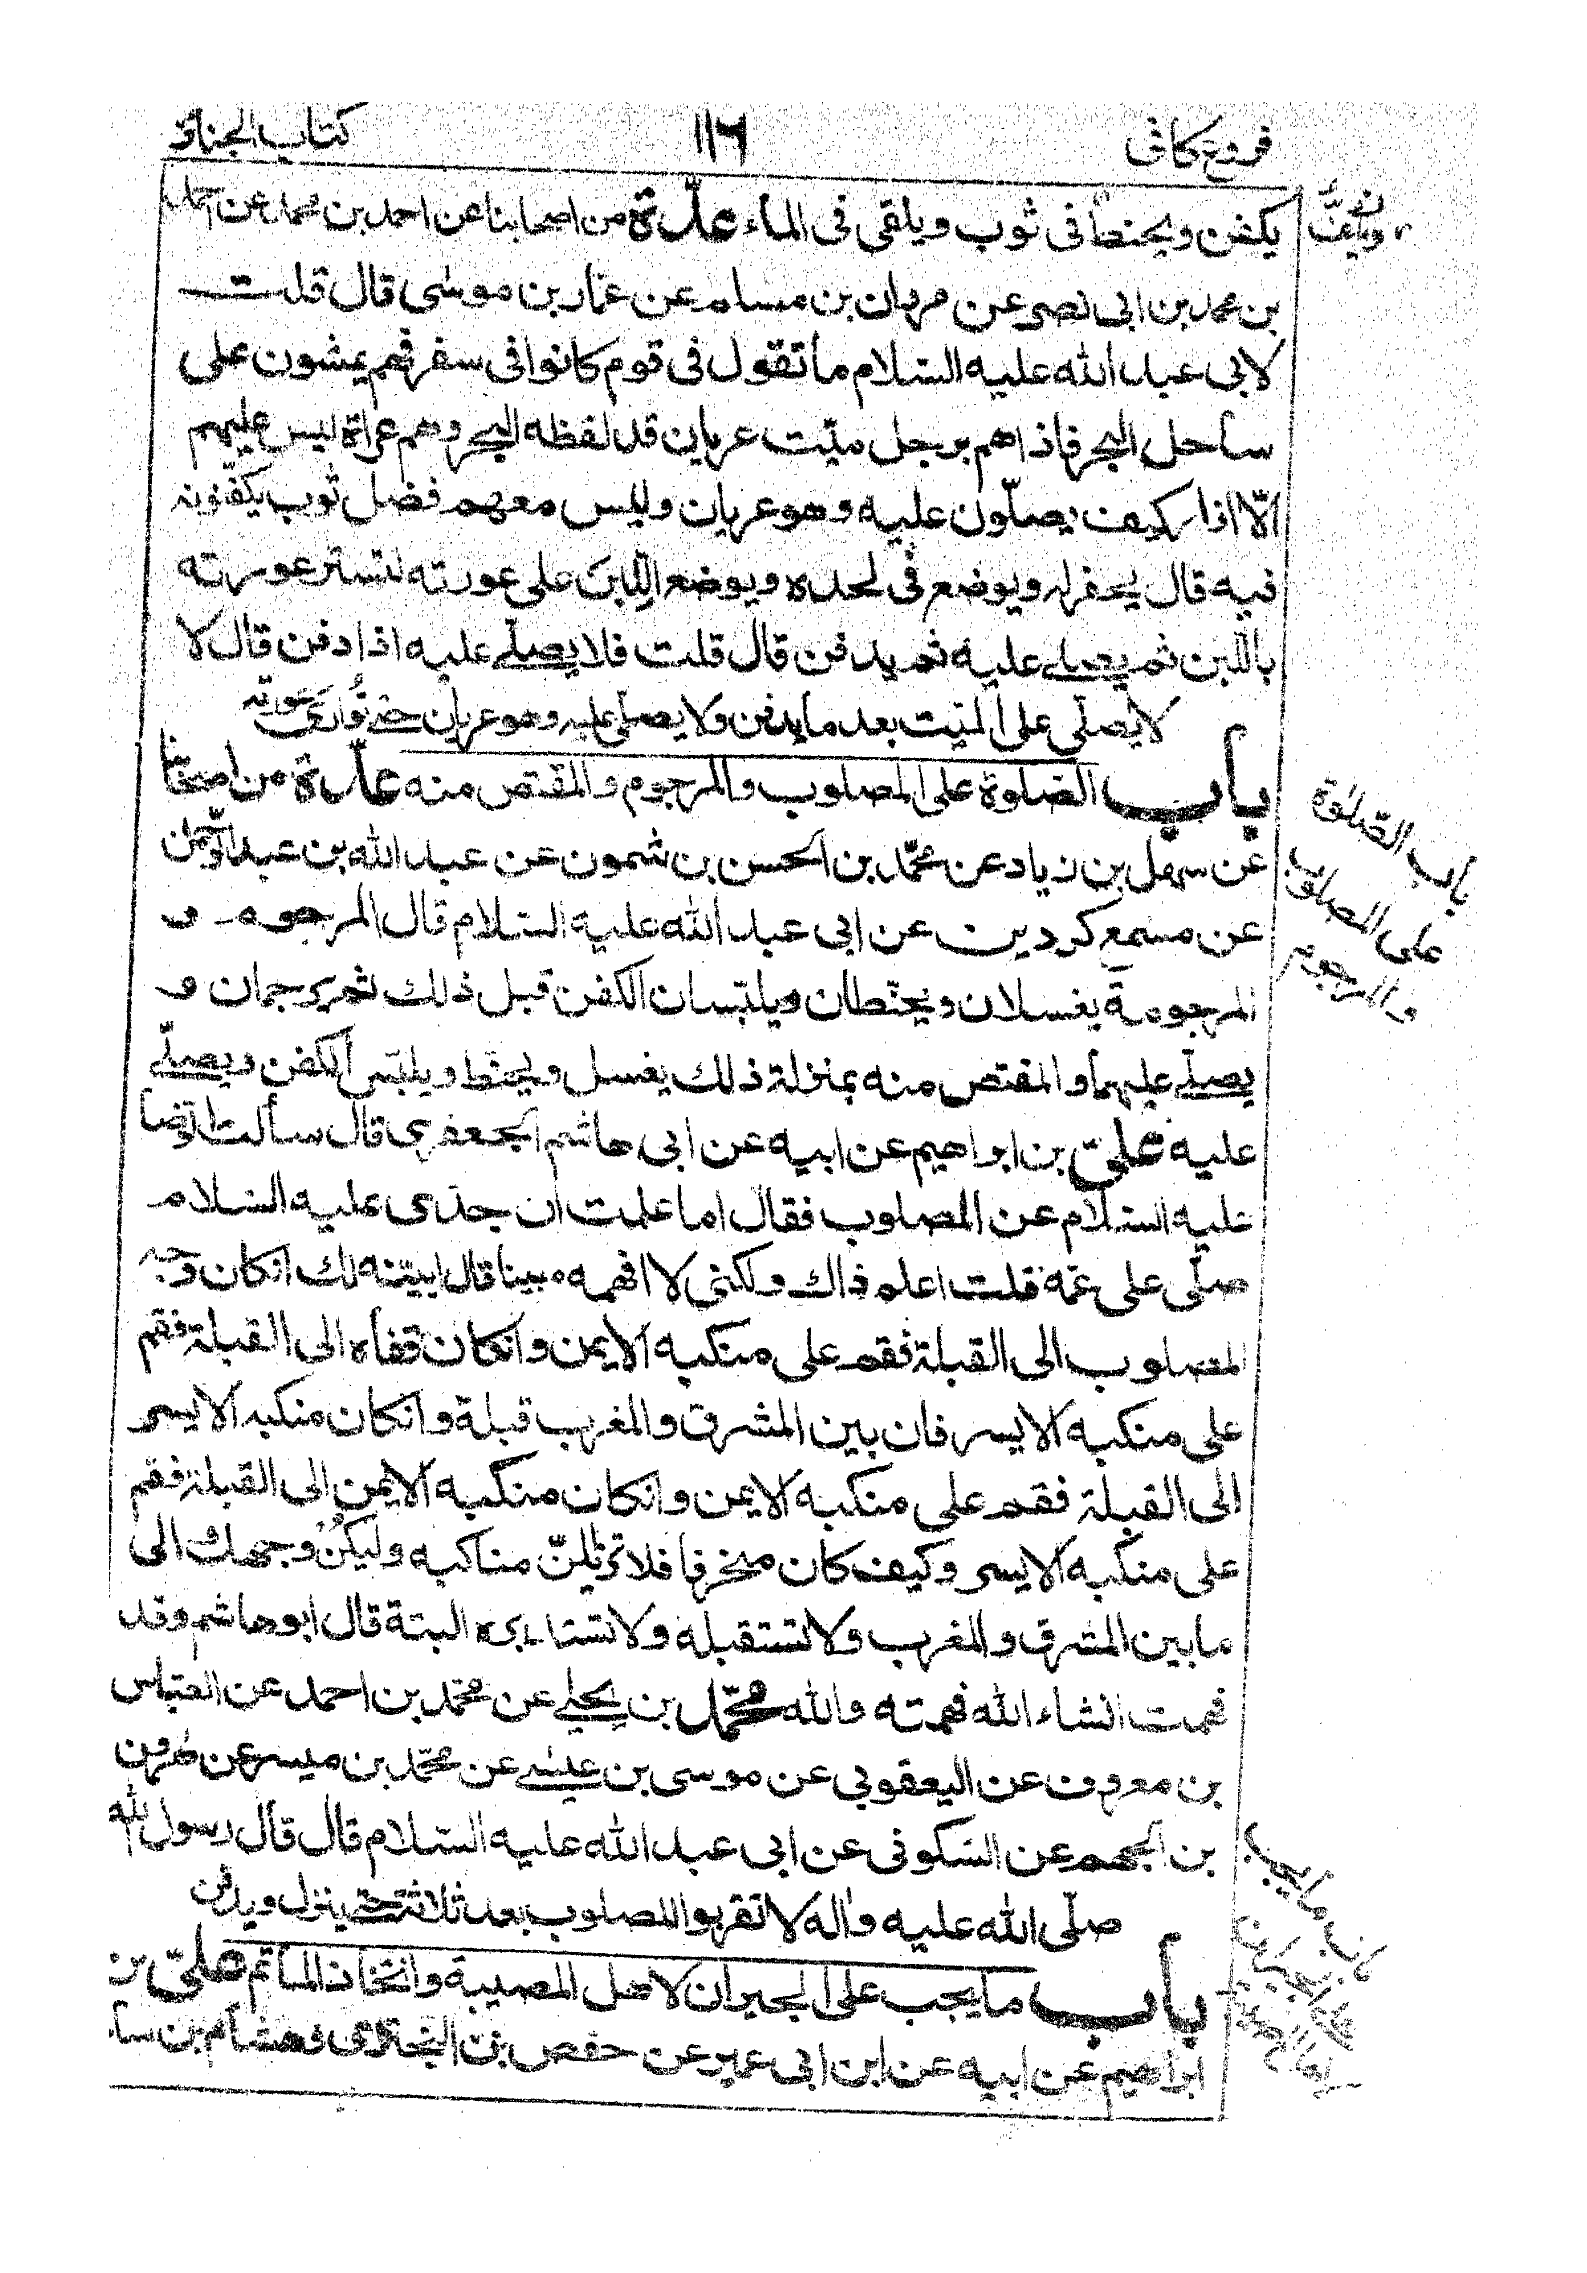 فروع كافى
١١٦
كتاب الجنائز
يكفن ويحنط فى ثوب ويلقى فى الماء عدّة من اصحابنا عن احمد بن محمد عن احمد
بن محمد بن ابى نصر عن مروان بن مسلم عن عمّار بن موسى قال قلت
لابى عبد الله عليه السّلام ما تقول فى قوم كانوا فى سفر فهم يمشون على
ساحل البحر فاذا هم برجل ميّت عريان قد لفظه البحر وهم عراة ليس عليهم
الّا ازار كيف يصلّون عليه وهو عريان وليس معهم فضل ثوب يكفّنونه
فيه قال يحفر له ويوضع فى لحده ويوضع اللّبن على عورته لتستر عورته
باللّبن ثم يصلى عليه ثم يدفن قال قلت فلا يصلّى عليه اذا دفن قال لا
لا يصلّى على الميّت بعد ما يدفن ولا يصلى عليه وهو عريان حتى تُوارَى عَورته
باب الصّلوة على المصلوب والمرجوم والمقتص منه عدّة من اصحابنا
عن سهل بن زياد عن محمّد بن الحسن بن شمون عن عبد الله بن عبد الرّحمن
عن مسمع كردين عن ابى عبد الله عليه السّلام قال المرجوم و
المرجومة يغسلان ويحنّطان ويلبسان الكفن قبل ذلك ثم يرجمان و
يصلّى عليهما والمقتص منه بمنزلة ذلك يغسل ويحنّط ويلبّس الكفن ويصلّى
عليه علىّ بن ابراهيم عن ابيه عن ابى هاشم الجعفرى قال سألت الرّضا
عليه السّلام عن المصلوب فقال اما علمت ان جدّى عليه السّلام
صلّى على عمّه قلت اعلم ذاك ولكنى لا افهمه مبينا قال ابيّنه لك ان كان وجه
المصلوب الى القبلة فقم على منكبه الايمن وان كان قفاه الى القبلة فقم
على منكبه الايسر فان بين المشرق والمغرب قبلة وان كان منكبه الايسر
الى القبلة فقم على منكبه الايمن وان كان منكبه الايمن الى القبلة فقم
على منكبه الايسر وكيف كان منحرفا فلا تزايلنّ مناكبه وليكن وجهك الى
ما بين المشرق والمغرب ولا تستقبله ولا تستدبره البتة قال ابو هاشم وقد
فهمت انشاء الله فهمته والله محمّد بن يحيى عن محمّد بن احمد عن العبّاس
بن معروف عن اليعقوبى عن موسى بن عيسى عن محمّد بن ميسر عن هرون
بن الجهم عن السّكونى عن ابى عبد الله عليه السّلام قال قال رسول الله
صلّى الله عليه واله لا تقربوا المصلوب بعد ثلاثة حتى ينزل ويدفن
باب ما يجب على الجيران لاهل المصيبة واتخاذ المأتم علىّ بن
ابراهيم عن ابيه عن ابن ابى عمير عن حفص بن البخترى وهشام بن سا
باب الصّلوة
على المصلوب
والمرجوم